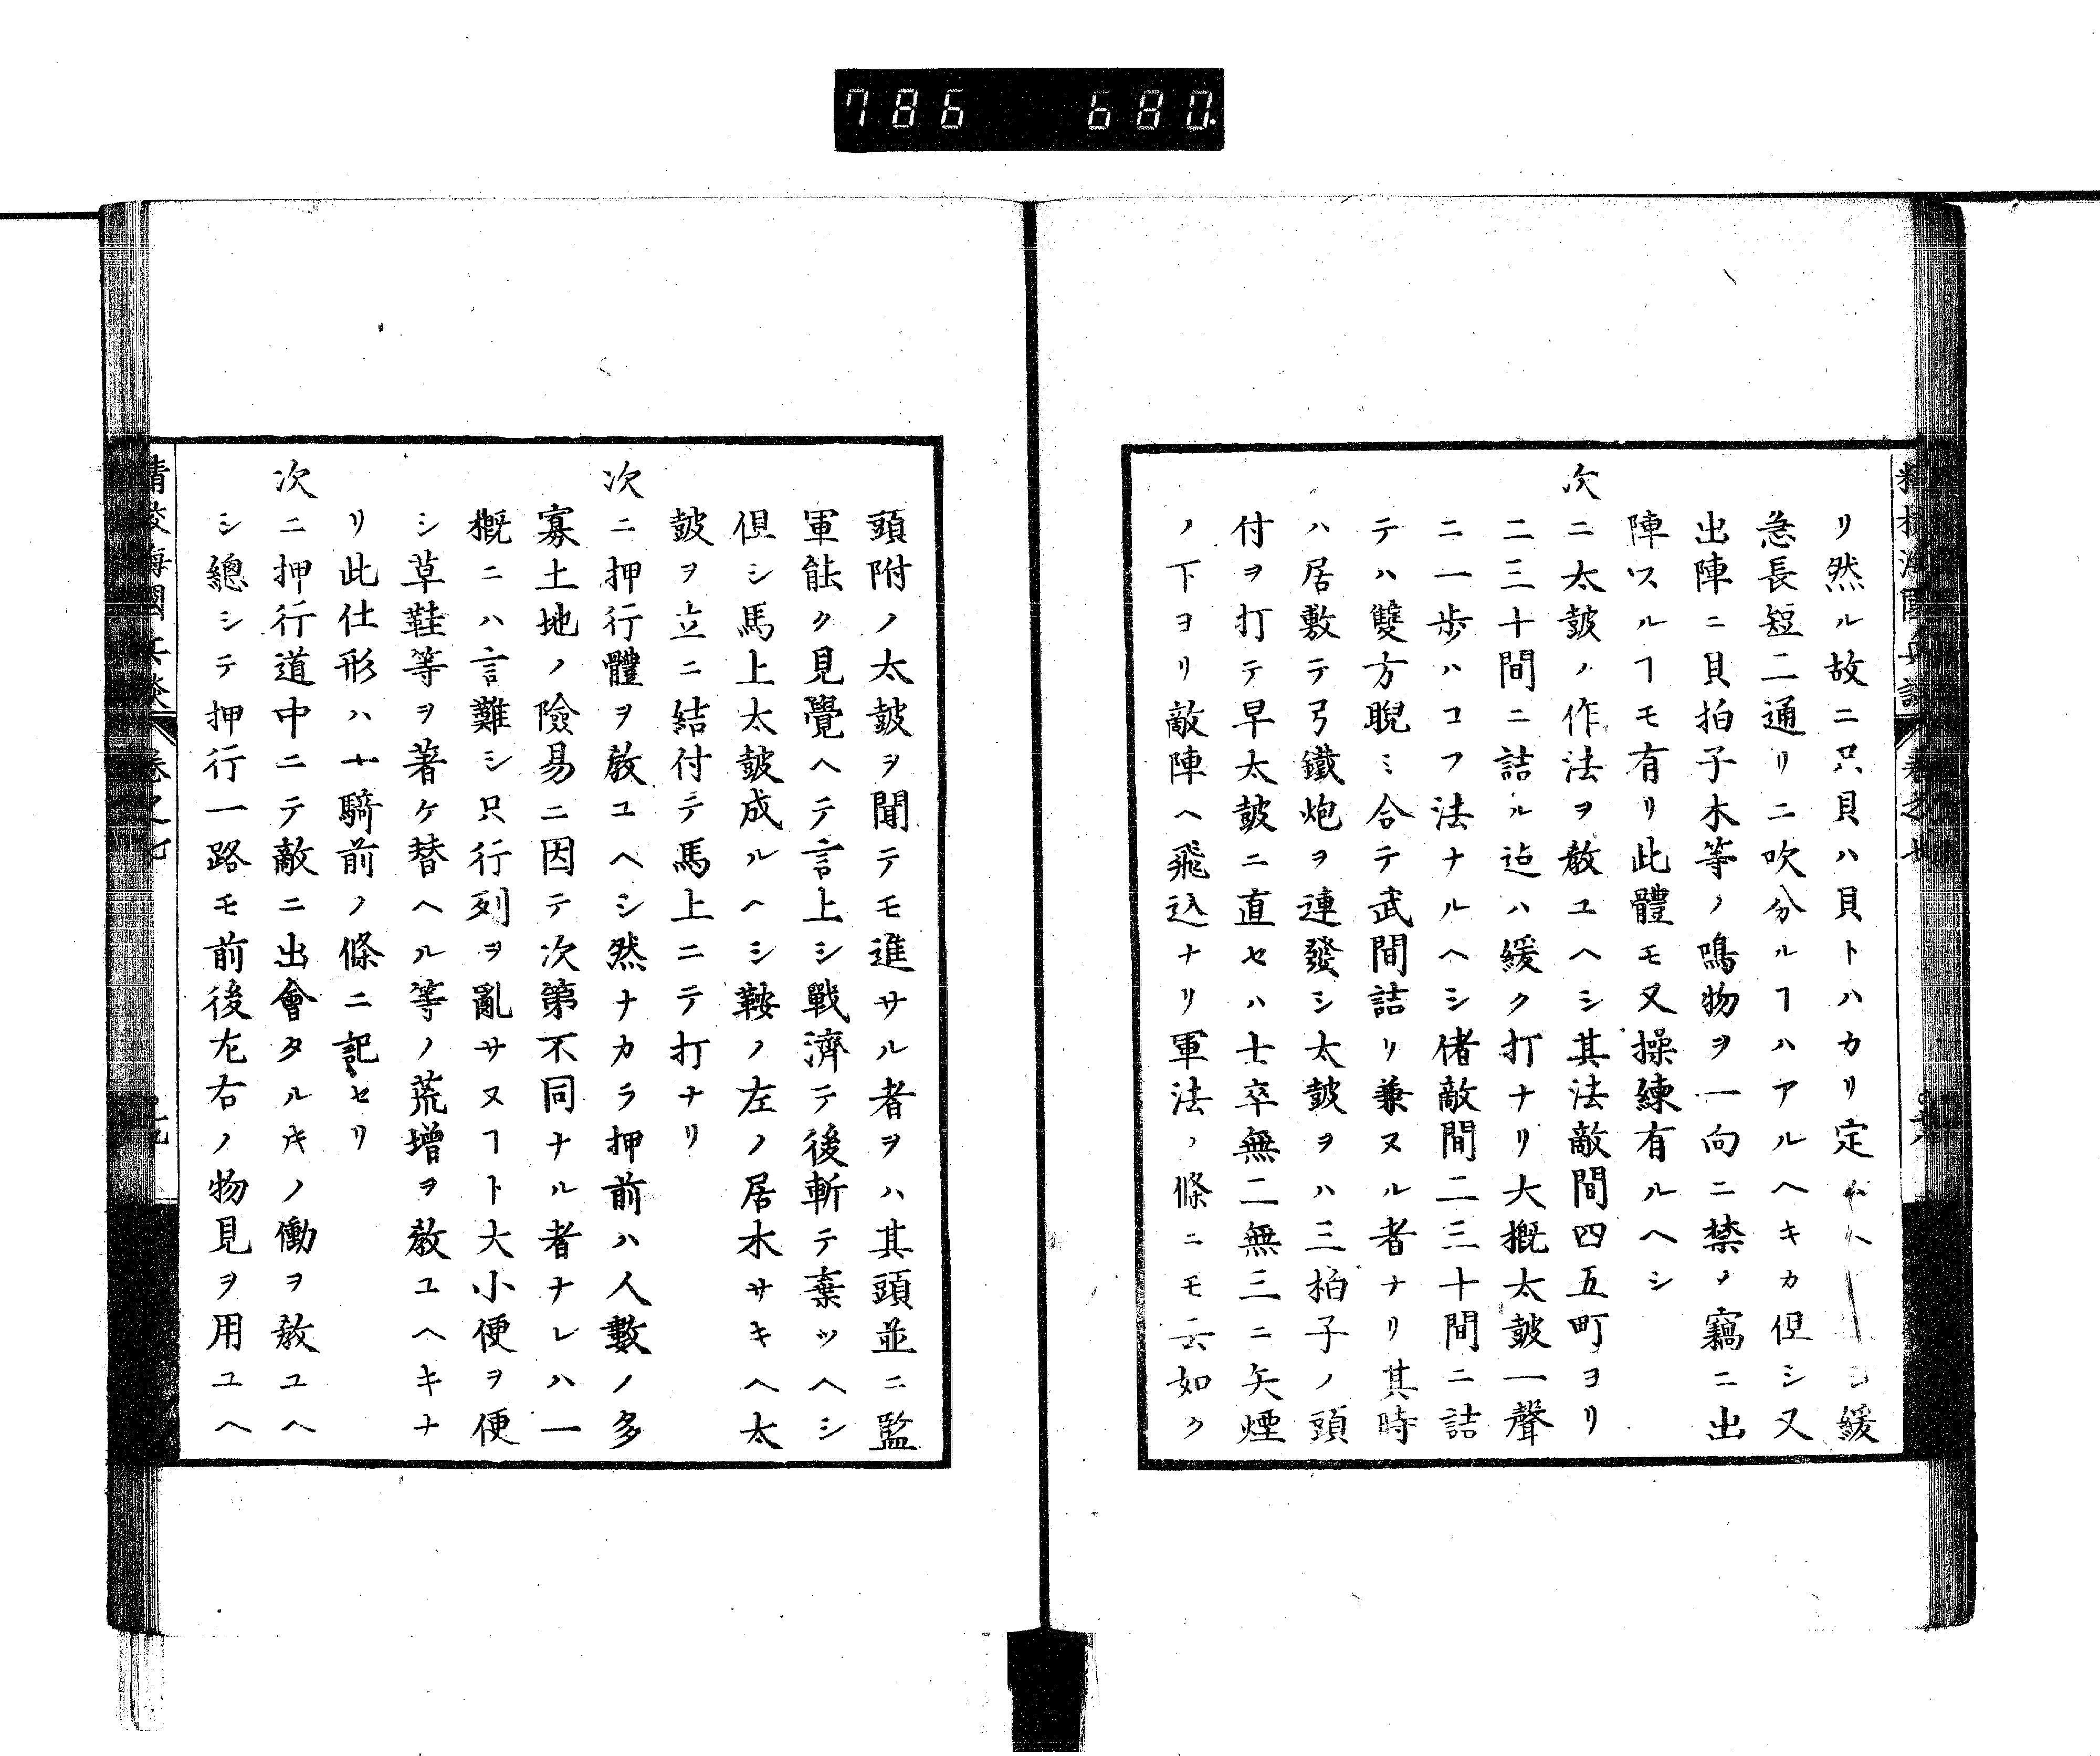 786 680
リ然ル故ニ只貝ハ貝トハカリ定 緩
急長短二通リニ吹分ルヿハアルヘキカ但シ又
出陣ニ貝拍子木等ノ鳴物ヲ一向ニ禁メ竊ニ出
陣スルヿモ有リ此體モ又操練有ルヘシ
次ニ太皷ノ作法ヲ敎ユヘシ其法敵間四五町ヨリ
二三十間ニ詰ル迠ハ緩ク打ナリ大概太皷一聲
ニ一歩ハコフ法ナルヘシ偖敵間二三十間ニ詰
テハ雙方睨ミ合テ武間詰リ兼ヌル者ナリ其時
ハ居敷テ弓鐵炮ヲ連發シ太皷ヲハ三拍子ノ頭
付ヲ打テ早太皷ニ直セハ士卒無二無三ニ矢煙
ノ下ヨリ敵陣ヘ飛込ナリ軍法ノ條ニモ云如ク
頭附ノ太皷ヲ聞テモ進サル者ヲハ其頭並ニ監
軍能ク見覺ヘテ言上シ戰濟テ後斬テ棄ツヘシ
但シ馬上太皷成ルヘシ鞍ノ左ノ居木サキヘ太
皷ヲ立ニ結付テ馬上ニテ打ナリ
次ニ押行體ヲ敎ユヘシ然ナカラ押前ハ人數ノ多
寡土地ノ險易ニ因テ次第不同ナル者ナレハ一
概ニハ言難シ只行列ヲ亂サヌヿト大小便ヲ便
シ草鞋等ヲ著ケ替ヘル等ノ荒増ヲ敎ユヘキナ
リ此仕形ハ十騎前ノ條ニ記セリ
次ニ押行道中ニテ敵ニ出會タルキノ働ヲ敎ユヘ
シ總シテ押行一路モ前後左右ノ物見ヲ用ユヘ
精校海國兵談 卷之七